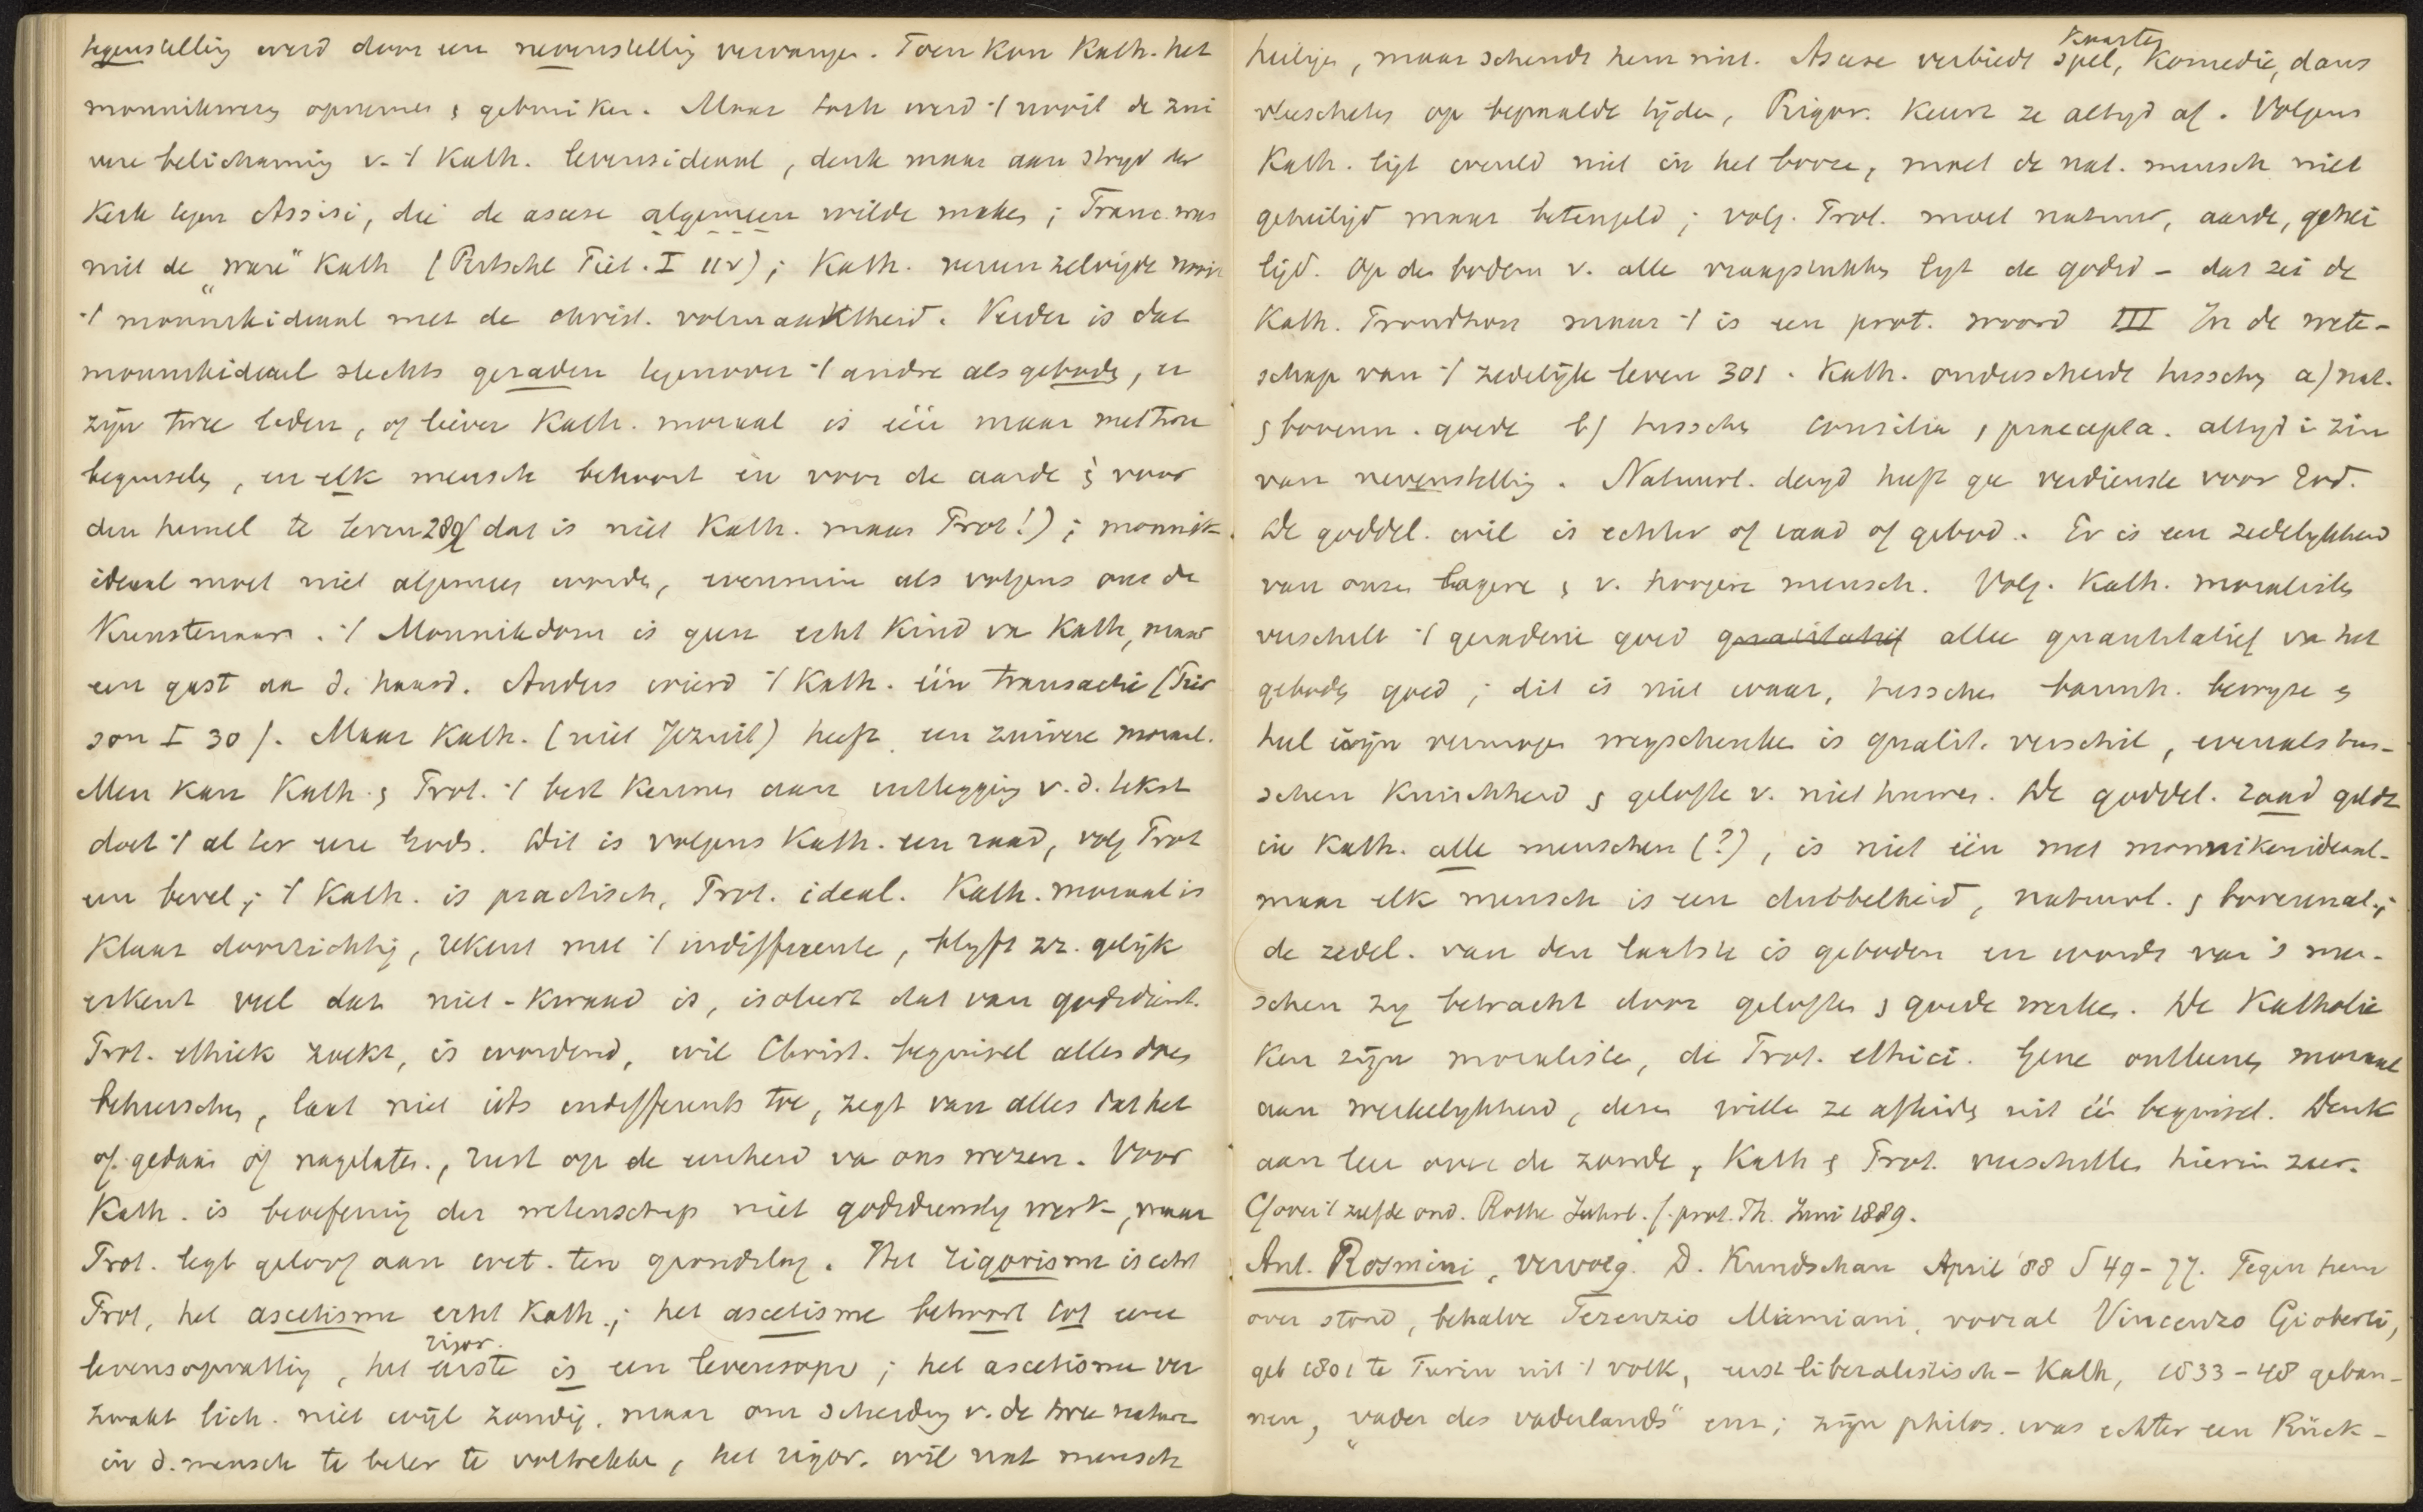 tegenstelling werd door een nevenstelling vervangen. Toen kon Kath. het
monnikwezen opnemen & gebruiken. Maar toch werd 't nooit de zui
vere belichaming v. 't Kath. levensideaal, denk maar aan strijd der
Kerk tegen Assisi, die de ascese algemeen wilde maken; Franc. was
niet de „ware" Kath (Ritschl Piet. I ); Kath. vereenzelvigde nooit
't monnikideaal met de christ. volmaaktheid. Verder is dat
monnikideaal slechts geraden tegenover 't andre als geboden, er
zijn twee leden, of liever Kath. moraal is één maar met twee
beginselen, en elk mensch behoort èn voor de aarde & voor
den hemel te leven 289 (dat is niet Kath. maar Prot!); monnik-
ideaal moet niet algemeen worden, evenmin als volgens ons de
Kunstenaar. 't Monnikdom is geen echt Kind va Kath, maar
een gast aan d. haard. Anders wierd 't Kath. één transactie (Pier
son I 30). Maar Kath. (niet Jezuit) heeft een zuivere moraal.
Men kan Kath. & Prot. 't best kennen aan uitlegging v. d. tekst
doet 't al ter eere Gods. Dit is volgens Kath. een raad, volg Prot
een bevel; 't Kath. is practisch, Prot. ideal. Kath. moraal is
klaar doorzichtig, rekent met 't indifferente, blyft zz. gelijk
erkent veel dat niet-kwaad is, isoleert dat van godsdienst.
Prot. ethiek zoekt, is wordend, wil Christ. beginsel alles doen
beheerschen, laat niet iets indifferents toe, zegt van alles dat het
of gedaan óf nagelaten, rust op de eenheid va ons wezen. Voor
Kath. is beoefening der wetenschap niet godsdienstig werk, maar
Prot. legt geloof aan wet. ten grondslag. Het rigorisme is echt
Prot, het ascetisme echt Kath.; het ascetisme behoort tot eene
levensopvatting, het eerste rigor. is een levensopv; het ascetisme ver
zwakt lich. niet wijl zondig, maar om scheiding v. de twee naturen
in d. mensch te beter te voltrekken, het rigor. wil nat mensch
heiligen, maar schendt hem niet. Ascese verbiedt Kaarten spel, Komedie, dans
vleescheten op bepaalde tijden, Rigor. keurt ze altijd af. Volgens
Kath. ligt wereld niet in het booze, moet de nat. mensch niet
geheiligd maar beteugeld; volg. Prot. moet natuur, aarde, gehei
ligd. Op den bodem v. alle vraagstukken ligt de godsd - dat zei de
Kath. Proudhon maar 't is een prot. woord III In de wete-
schap van 't zedelijk leven 301. Kath. onderscheidt tusschen a) nat.
& bovenn. goede b) tusschen consilia & praecepta. altyd i zin
van nevenstelling. Natuurl. deugd heeft gee verdienste voor God.
De goddel. wil is echter of raad of gebod. Er is een zedelykheid
van onzen lagere & v. hoogere mensch. Volg. Kath. moralisten
verschilt 't geradene goed allee quantitatief va het
geboden goed; dit is niet waar, tusschen barmh. bewyze &
heel zijn vermogen wegschenken is qualit. verschil, evenals tus-
schen Kuischheid & gelofte v. niet huwen. De goddel. raad geldt
in Kath. alle menschen (?), is niet één met monnikenideaal-
maar elk mensch is een dubbelheid, natuurl. & bovennat.;
de zedel. van den laatste is geboden en wordt van 's men-
schen zy betracht door geloften & goede werken. De Katholie
ken zijn moralisten, de Prot. ethici. Gene ontleenen moraal
aan werkelykheid, deze willen ze afleiden uit éé beginsel. Denk
aan leer over de zonde, Kath & Prot. verschillen hierin zeer.
Cf over 't zelfde ond. Rothe Jahrb. f. prot. Th. Juni 1889.
Ant. Rosmini, vervolg. D. Rundschau April '88 S 49-77. Tegen hem
over stond, behalve Terenzio Mamiani, vooral Vincenzo Gioberti,
geb 1801 te Turin uit 't volk, eerst liberalistisch-Kath, 1833-48 geban-
nen, „vader des vaderlands" enz; zijn philos. was echter een Rück-